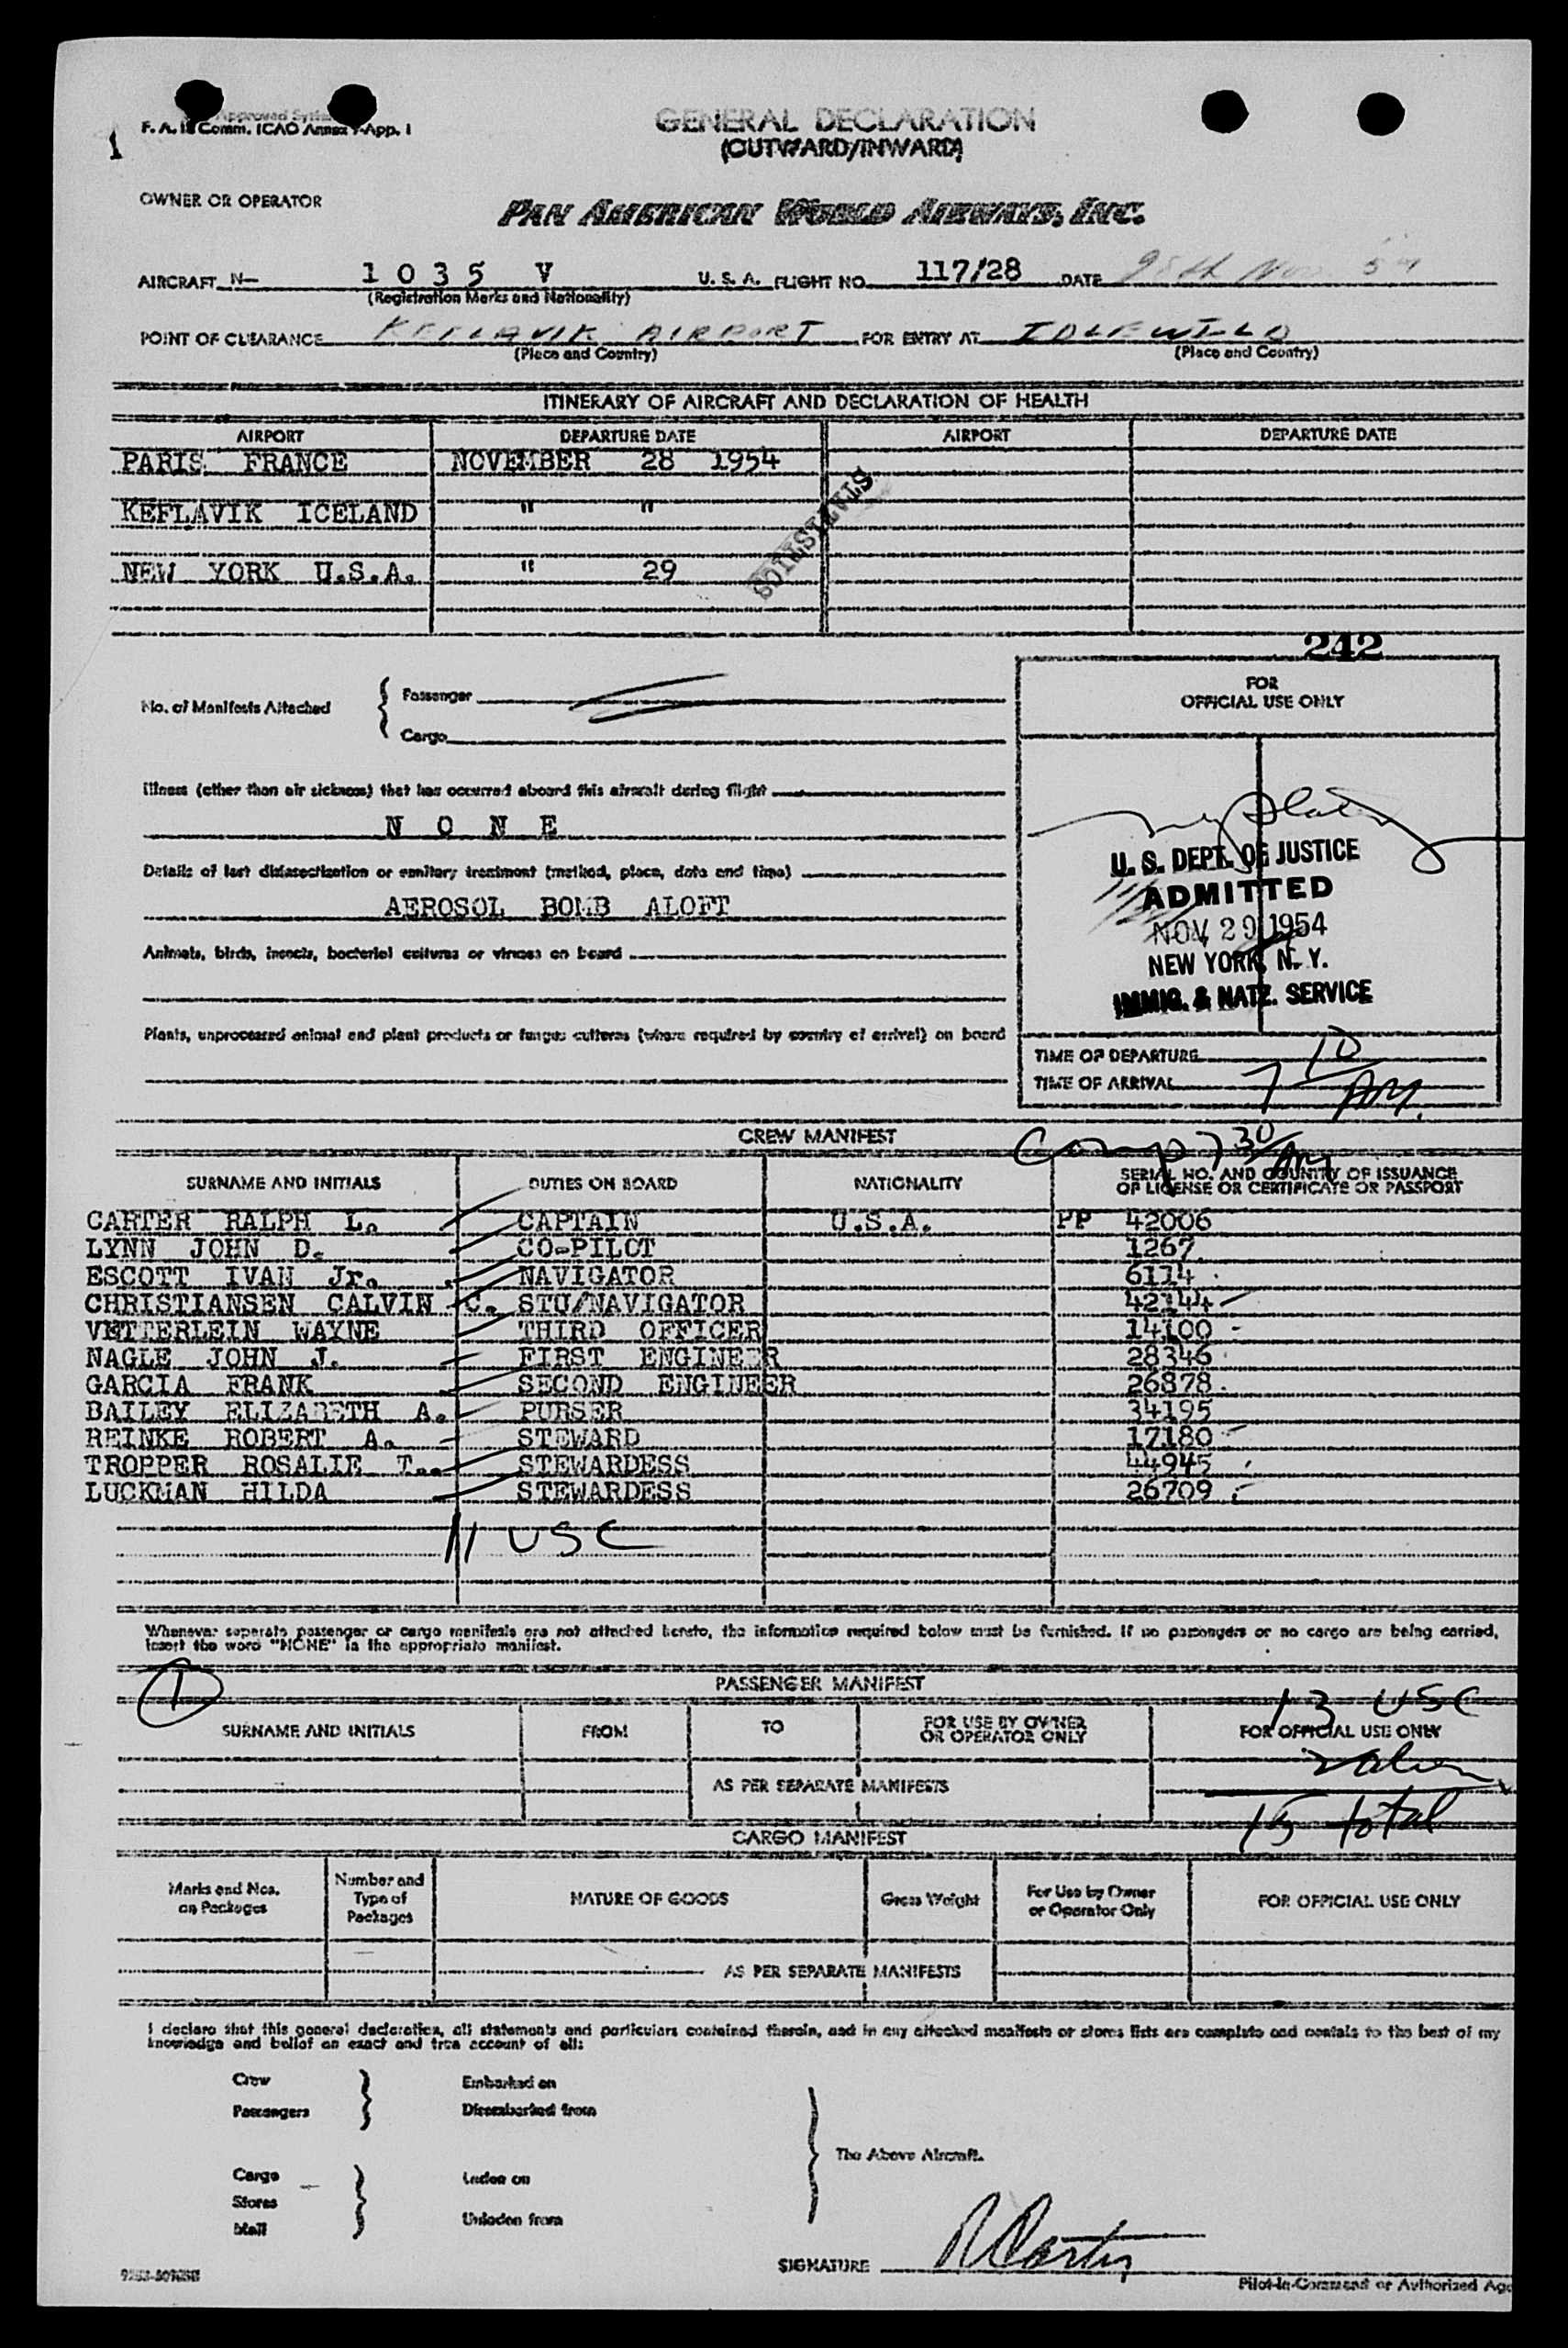 Approved
F. A. I. Comm. ICAO Annex 9-App. I
1
GENERAL DECLARATION
(OUTWARD/INWARD)
OWNER OR OPERATOR
PAN AMERICAN WORLD AIRWAYS, INC.
AIRCRAFT N- 1 0 3 5 V U. S. A. FLIGHT NO. 117/28 DATE 28th Nov 54
(Registration Marks and Nationality)
POINT OF CLEARANCE KEFLAVIK AIRPORT FOR ENTRY AT IDLEWILD
(Place and Country) (Place and Country)
ITINERARY OF AIRCRAFT AND DECLARATION OF HEALTH
AIRPORT DEPARTURE DATE AIRPORT DEPARTURE DATE
PARIS FRANCE NOVEMBER 28 1954
STATISTICS
KEFLAVIK ICELAND " "
NEW YORK U.S.A. " 29
242
No. of Manifests Attached { Passenger
Cargo
FOR
OFFICIAL USE ONLY
Illness (other than air sickness) that has occurred aboard this aircraft during flight
N O N E
Details of last disinsectization or sanitary treatment (method, place, date and time)
AEROSOL BOMB ALOFT
Animals, birds, insects, bacterial cultures or viruses on board
Plants, unprocessed animal and plant products or fungus cultures (where required by country of arrival) on board
U. S. DEPT. OF JUSTICE
ADMITTED
NOV 29 1954
NEW YORK, N. Y.
IMMIG. & NATZ. SERVICE
TIME OF DEPARTURE
TIME OF ARRIVAL 7 10 AM.
CREW MANIFEST
Comp 7 30 AM
SURNAME AND INITIALS DUTIES ON BOARD NATIONALITY SERIAL NO. AND COUNTRY OF ISSUANCE
OF LICENSE OR CERTIFICATE OR PASSPORT
CARTER RALPH L. CAPTAIN U.S.A. PP 42006
LYNN JOHN D. CO-PILOT 1267
ESCOTT IVAN Jr. NAVIGATOR 6114
CHRISTIANSEN CALVIN C. STU/NAVIGATOR 42144
VETTERLEIN WAYNE THIRD OFFICER 14100
NAGLE JOHN J. FIRST ENGINEER 28346
GARCIA FRANK SECOND ENGINEER 26878
BAILEY ELIZABETH A. PURSER 34195
REINKE ROBERT A. STEWARD 17180
TROPPER ROSALIE T. STEWARDESS 44945
LUCKMAN HILDA STEWARDESS 26709
11 USC
Whenever separate passenger or cargo manifests are not attached hereto, the information required below must be furnished. If no passengers or no cargo are being carried,
insert the word "NONE" in the appropriate manifest.
1
PASSENGER MANIFEST
13 USC
SURNAME AND INITIALS FROM TO FOR USE BY OWNER
OR OPERATOR ONLY FOR OFFICIAL USE ONLY
AS PER SEPARATE MANIFESTS
15 total
CARGO MANIFEST
Marks and Nos.
on Packages Number and
Type of
Packages NATURE OF GOODS Gross Weight For Use by Owner
or Operator Only FOR OFFICIAL USE ONLY
AS PER SEPARATE MANIFESTS
I declare that this general declaration, all statements and particulars contained therein, and in any attached manifests or stores lists are complete and contain to the best of my
knowledge and belief an exact and true account of all:
Crew Embarked on
Passengers Disembarked from
The Above Aircraft.
Cargo Laden on
Stores
Mail Unladen from
SIGNATURE R Carter
Pilot-in-Command or Authorized Age